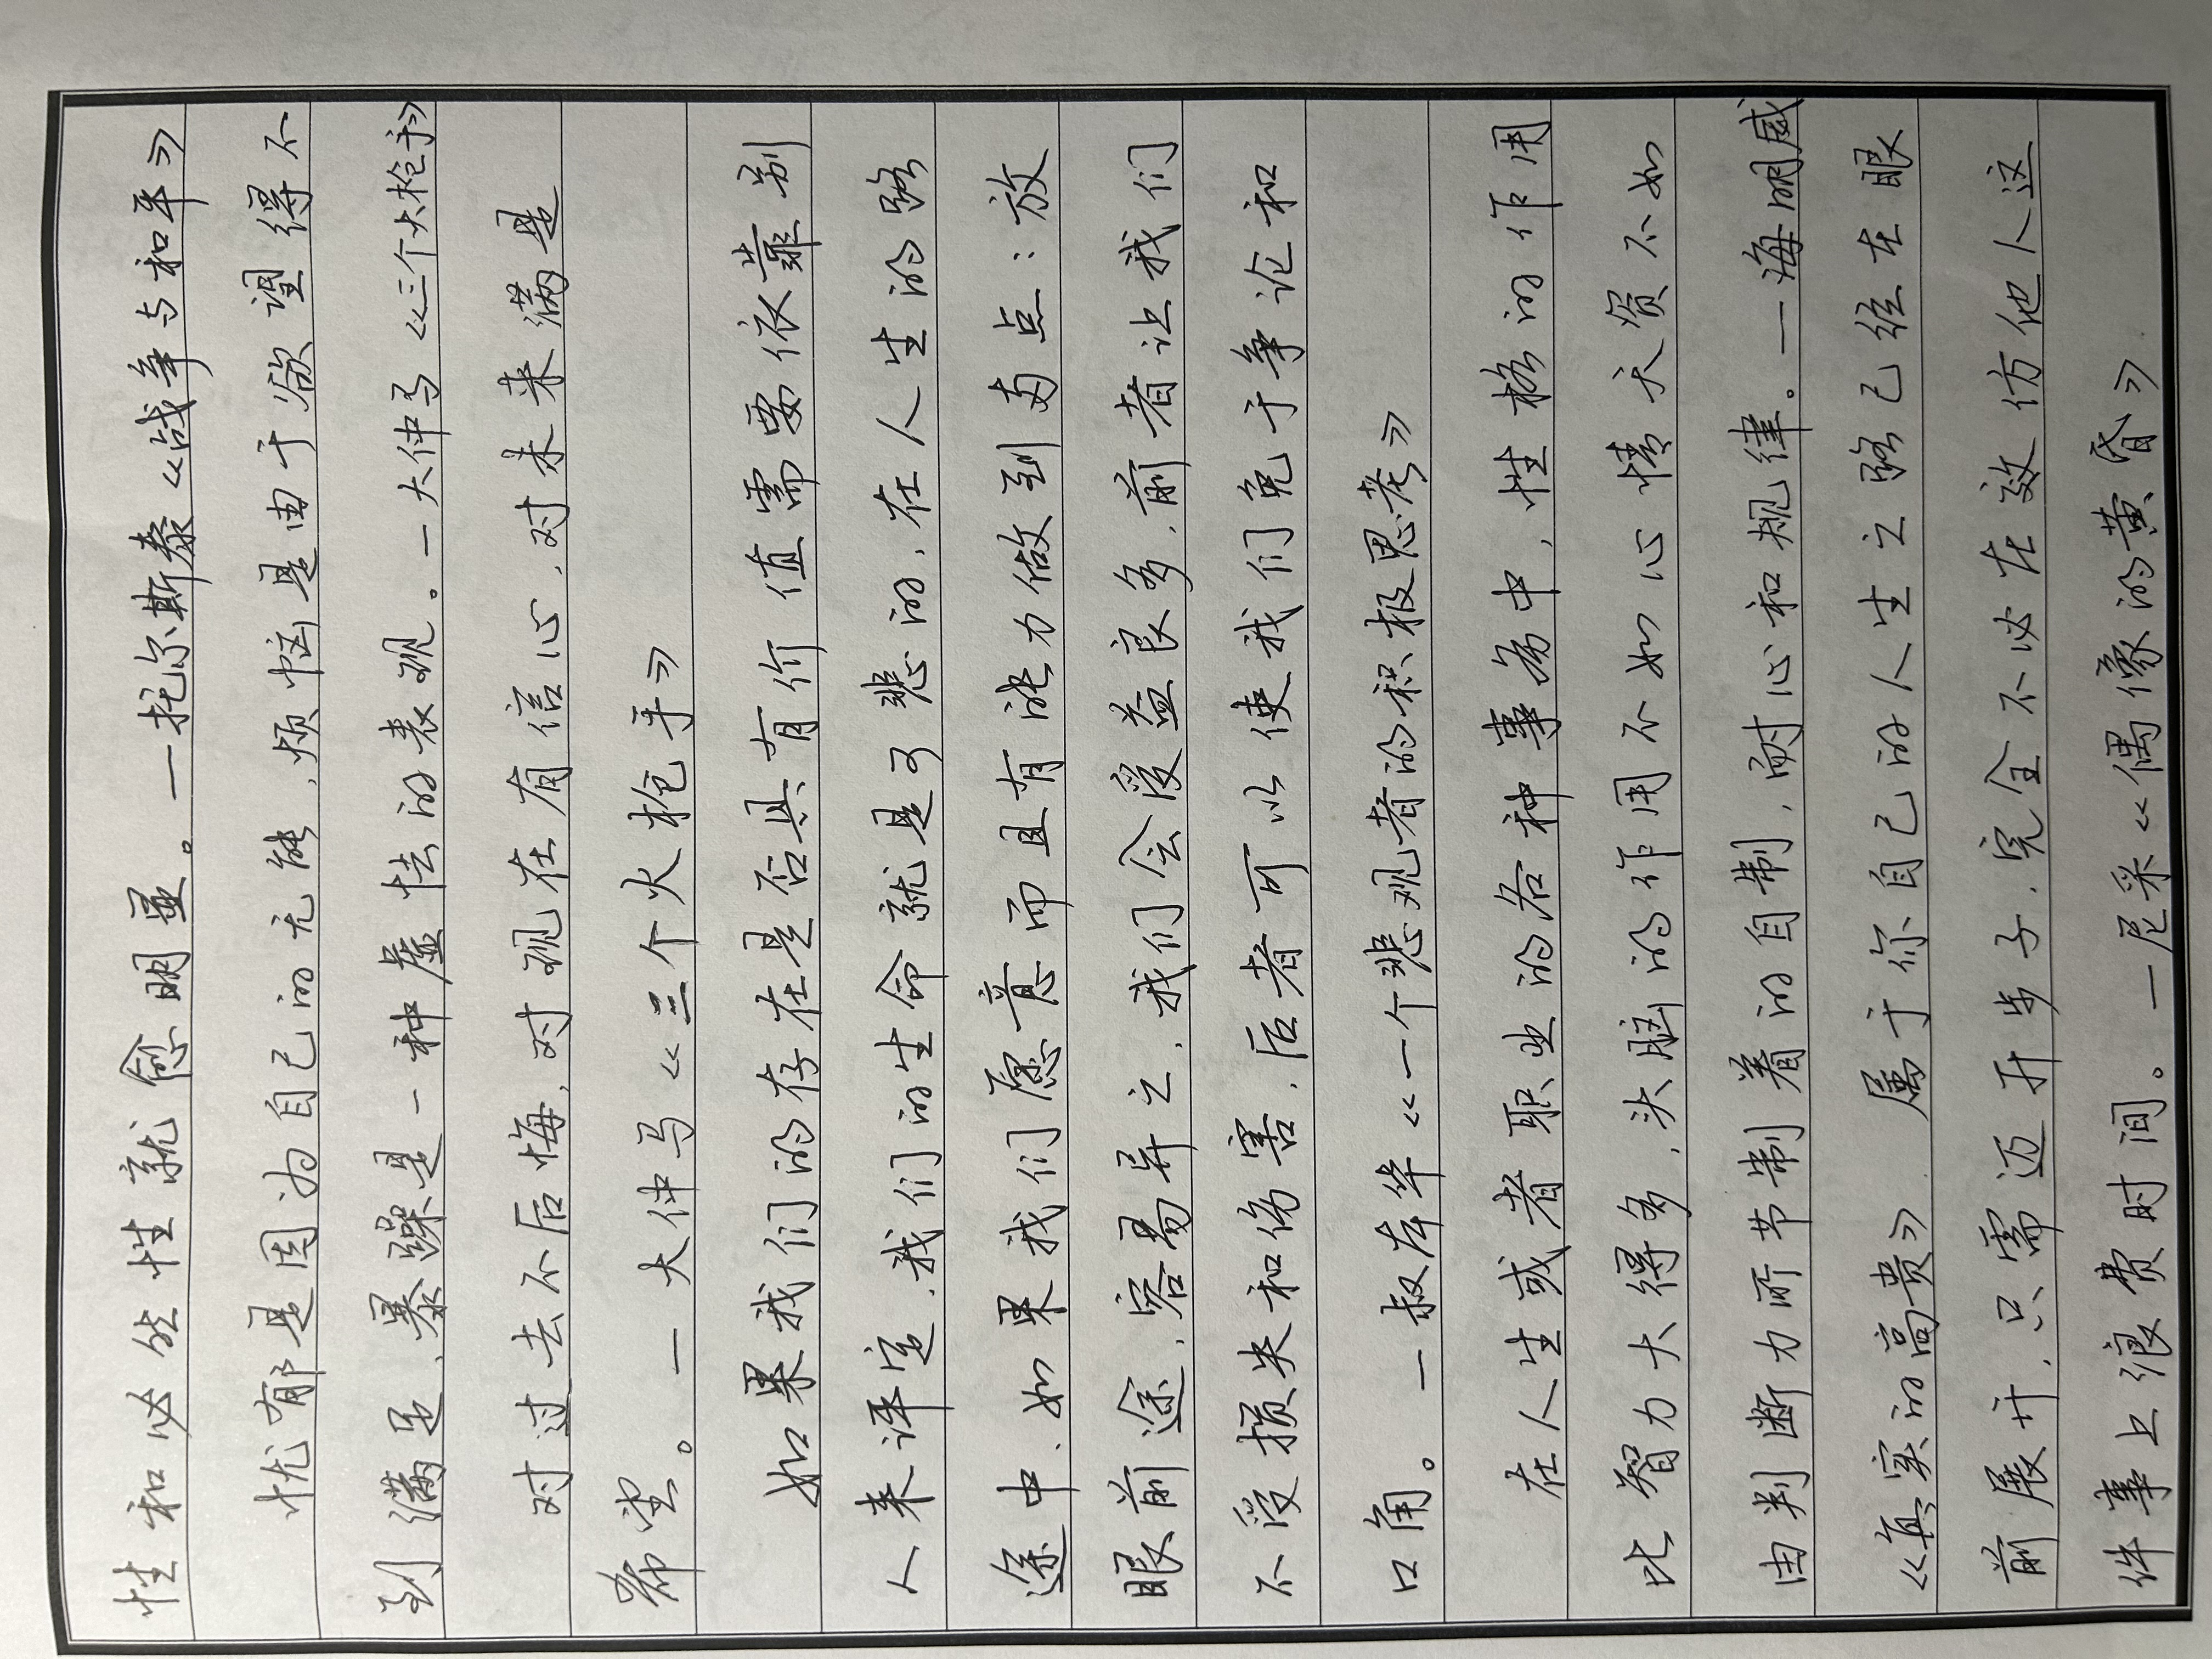 性和必然性就愈明显。—托尔斯泰《战争与和平》
忧郁是因为自己的无能,烦恼是由于欲望得不
到满足,暴躁是一种虚怯的表现。—大仲马《三个火枪手》
对过去不后悔,对现在有信心,对未来满是
希望。—大仲马《三个火枪手》
如果我们的存在是否具有价值需要依靠别
人来评定,我们的生命就是可悲的,在人生的路
途中,如果我们愿意而且有能力做到两点:放
眼前途,容易异之,我们会受益良多,前者让我们
不受损失和伤害,后者可以使我们免于争论和
口角。—叔本华《一个悲观者的积极思考》
在人生或者职业的各种事务中,性格的作用
比智力大得多,头脑的作用不如心情天资不如
由判断力所节制着的自制,耐心和规律。—海明威
《真实的高贵》.属于你自己的人生之路已经在眼
前展开,只需迈开步子,完全不必在效仿他人这
件事上浪费时间。—尼采《偶像的黄昏》